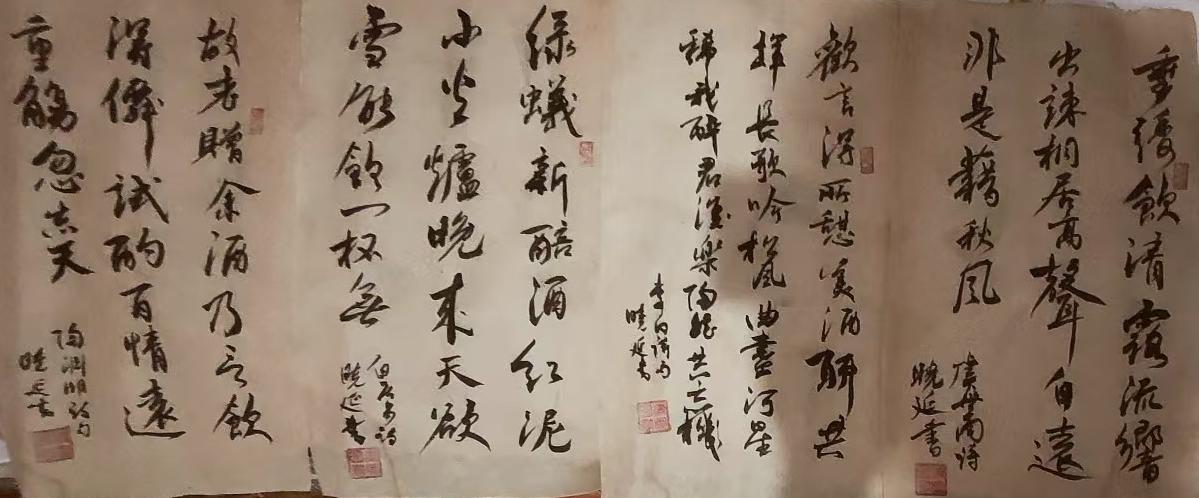 垂緌飲清露流響
出疎桐居高聲自遠
非是藉秋風
虞世南詩
曉延書
歡言得所憩美酒聊共
揮長歌吟松風曲盡河星
稀我醉君復樂陶然共忘機
李白詩句
曉延書
綠蟻新醅酒紅泥
小火爐晚來天欲
雪能飲一杯無
白居易詩
曉延書
故老贈余酒乃言飲
得僊試酌百情遠
重觴忽忘天
陶淵明詩句
曉延書